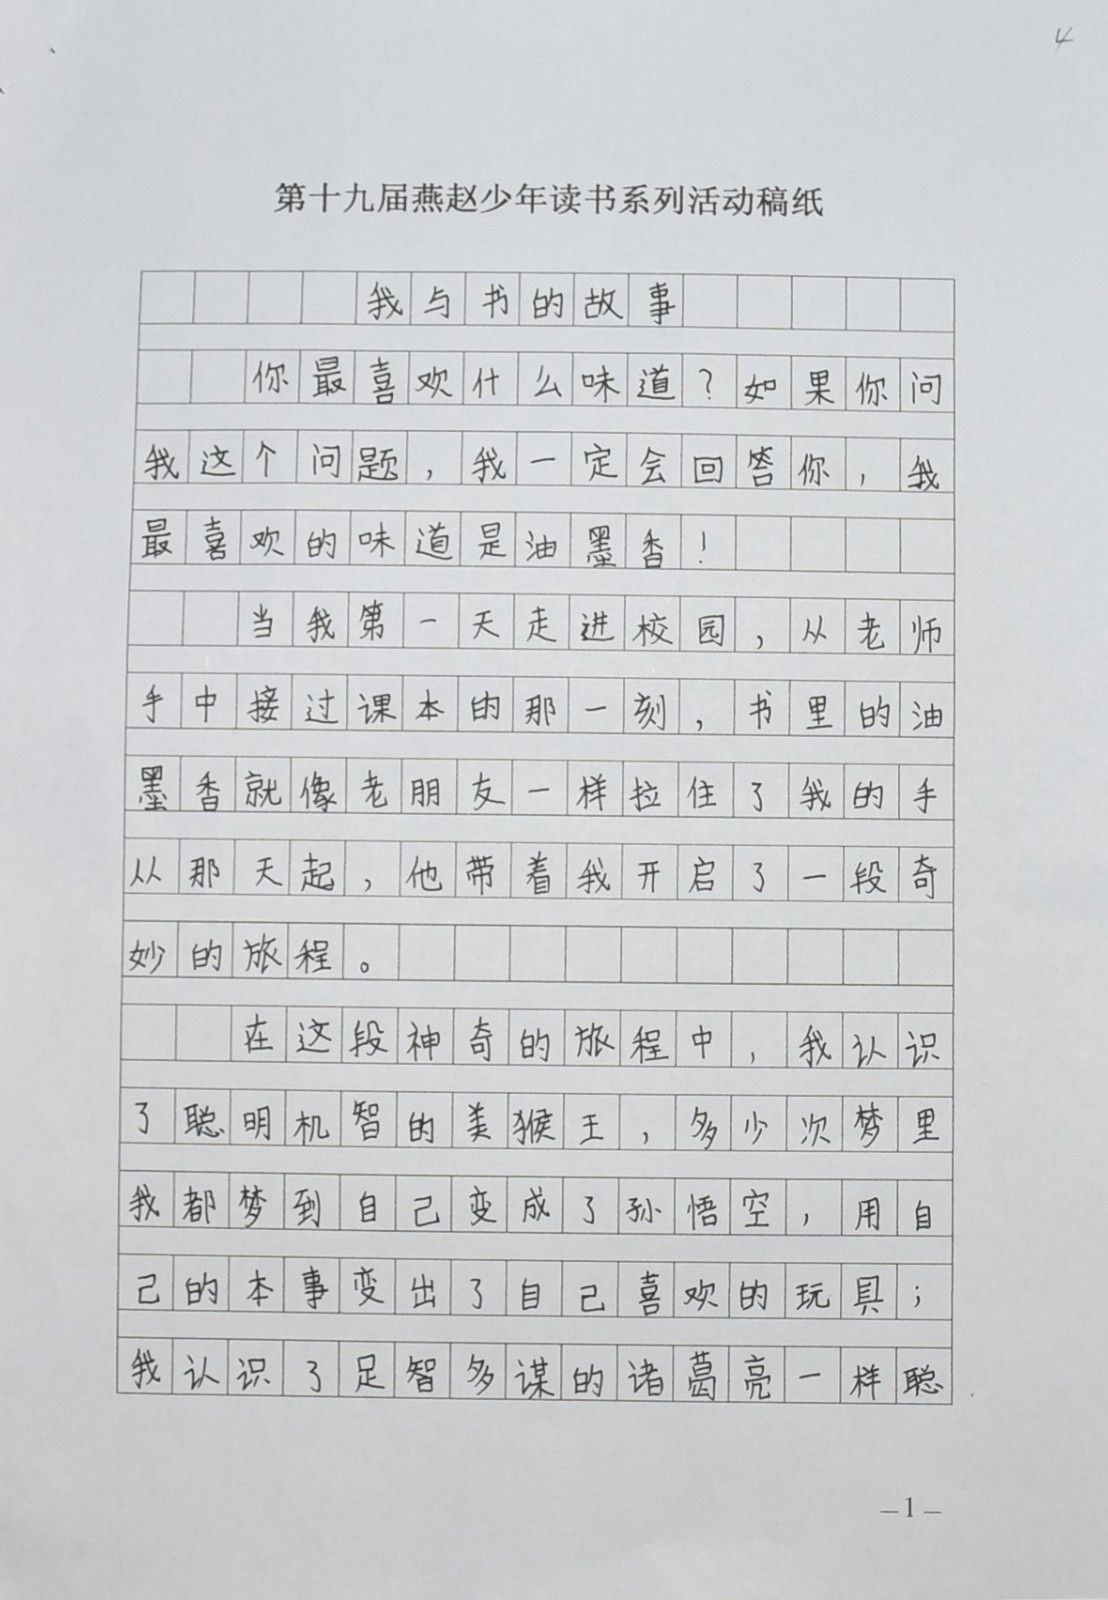 4
第十九届燕赵少年读书系列活动稿纸
我与书的故事
你最喜欢什么味道？如果你问
我这个问题，我一定会回答你，我
最喜欢的味道是油墨香！
当我第一天走进校园，从老师
手中接过课本的那一刻，书里的油
墨香就像老朋友一样拉住了我的手
从那天起，他带着我开启了一段奇
妙的旅程。
在这段神奇的旅程中，我认识
了聪明机智的美猴王，多少次梦里
我都梦到自己变成了孙悟空，用自
己的本事变出了自己喜欢的玩具；
我认识了足智多谋的诸葛亮一样聪
—1—